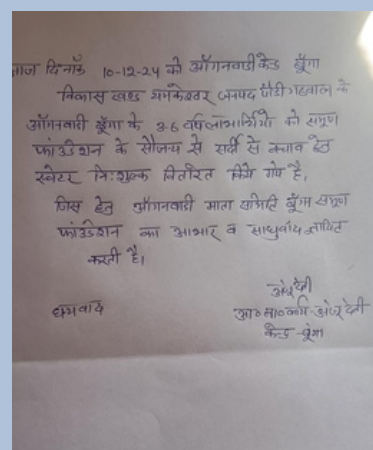 आज दिनाँक 10-12-24 को आँगनवाडी केन्द्र बूँगा
विकास खण्ड यमकेश्वर जनपद पौडी गढवाल के
आँगनवाडी बूँगा के 3-6 वर्ष लाभार्थियो को समूण
फाउंडेशन के सौजन्य से सर्दी से बचाव हेतु
स्वेटर निःशुल्क वितरित किये गये है,
जिस हेतु आँगनवाडी माता समिति बूँगा समूण
फाउंडेशन का आभार व साधुवाद ज्ञापित
करती है।
धन्यवाद
देवी
देवी
केन्द्र बूँगा